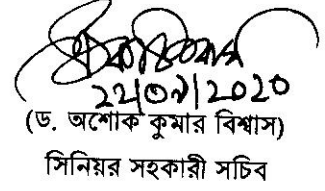 22|07|2020
(ড. অশোক কুমার বিশ্বাস)
সিনিয়র সহকারী সচিব